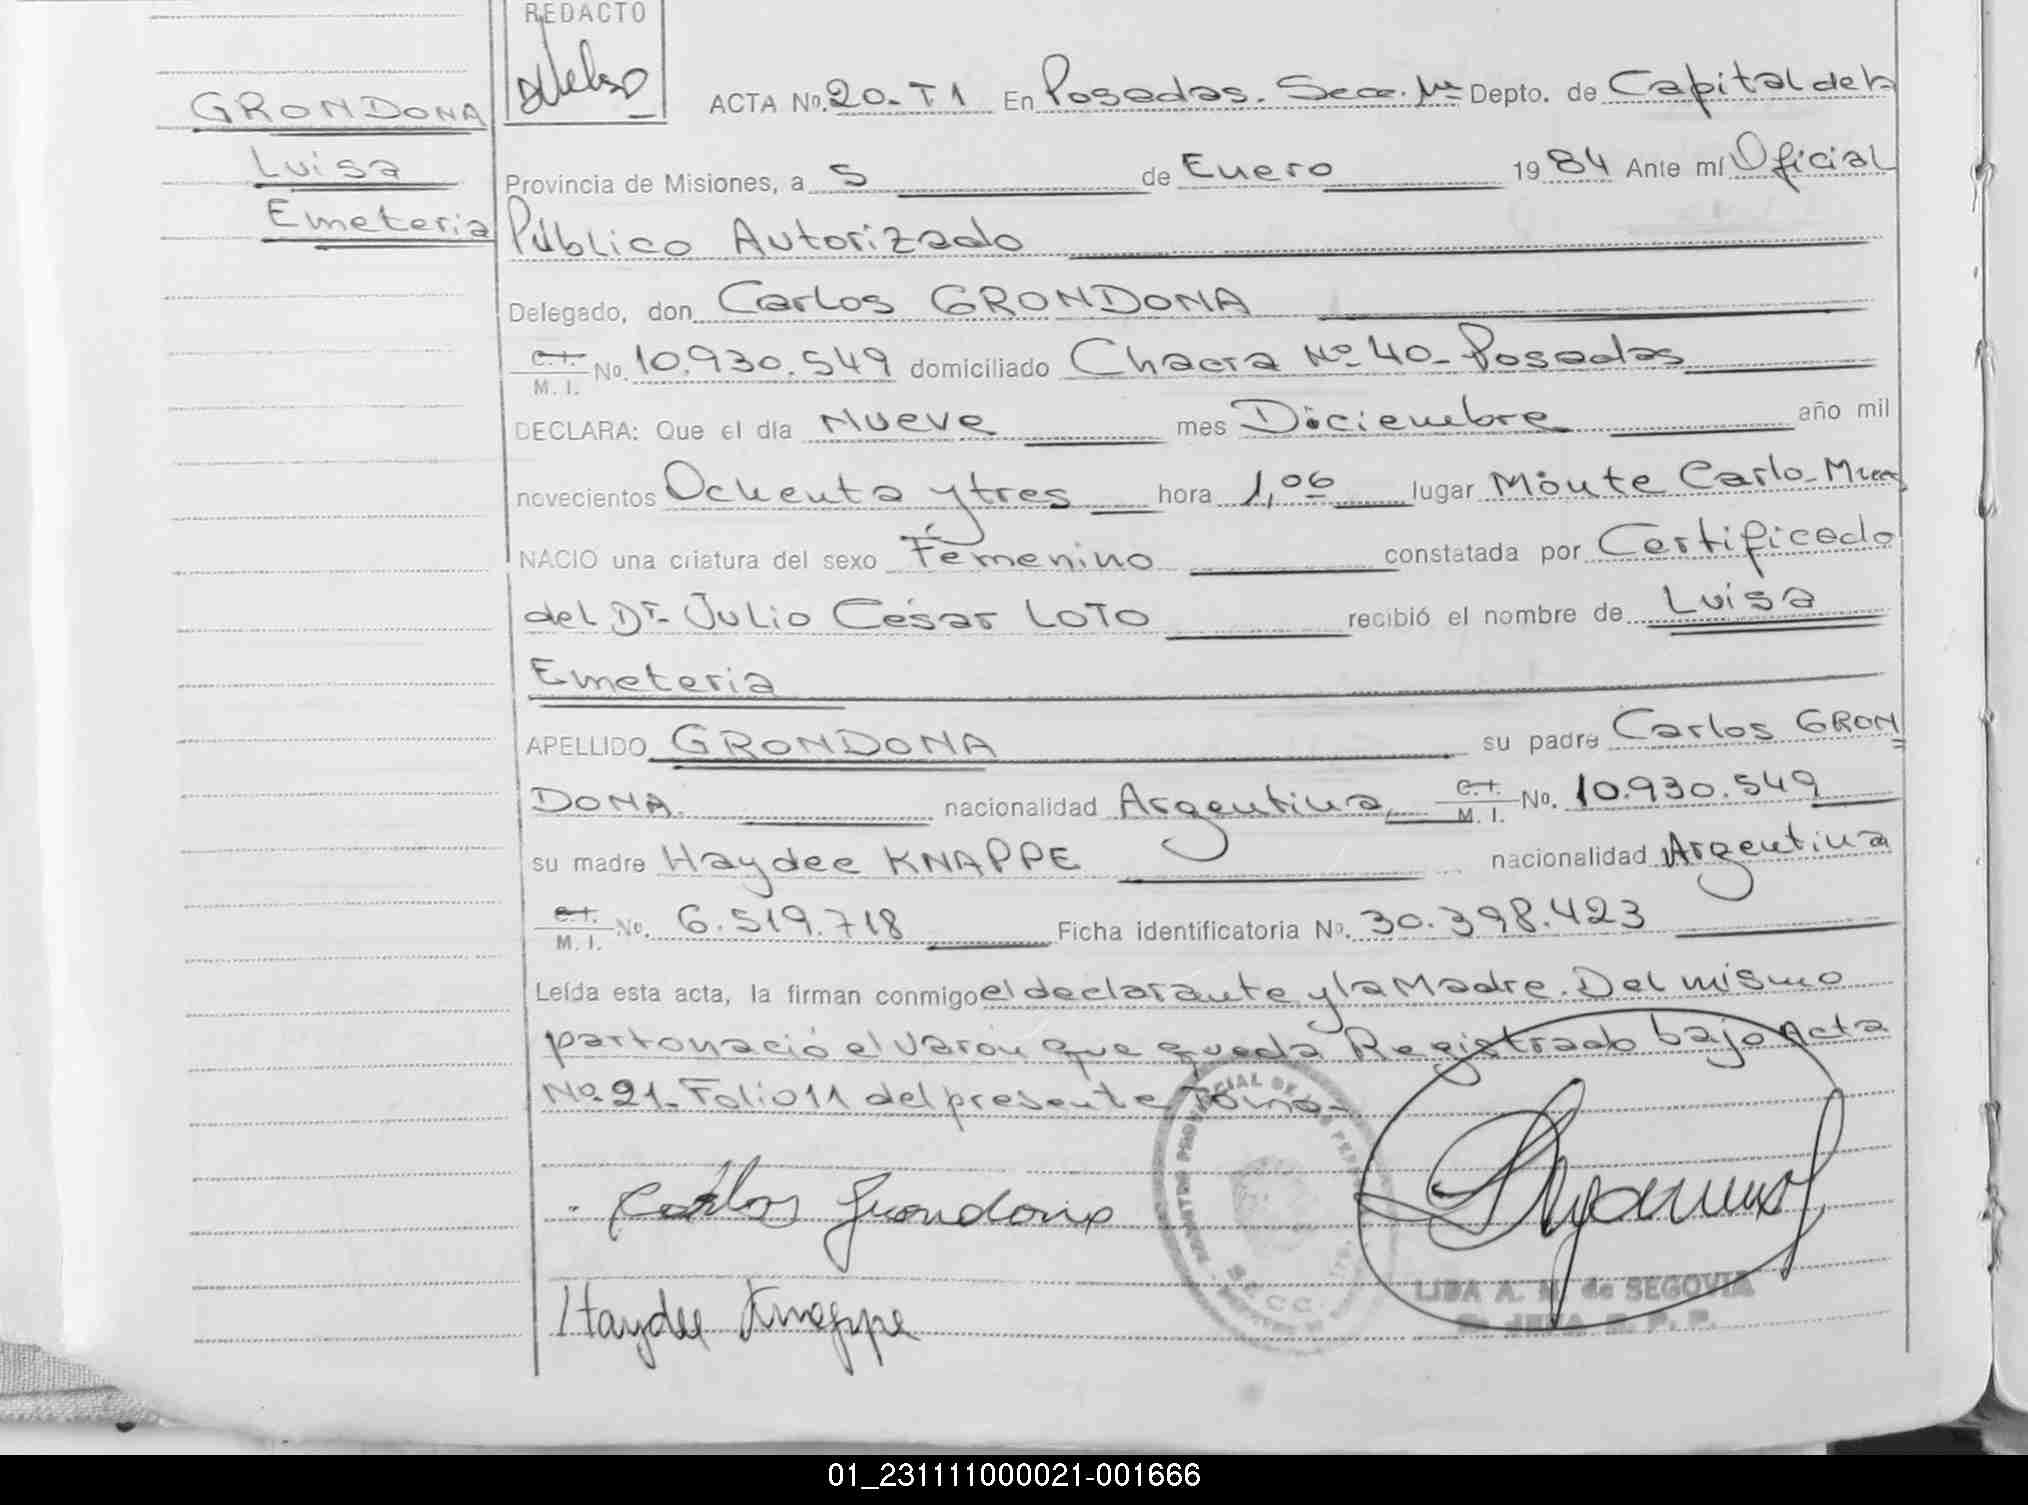 REDACTO
GRONDONA
Luisa
Emeteria
ACTA No. 20-T1 En Posadas. Secc. 1ra Depto. de Capital de la
Provincia de Misiones, a 5 de Enero 1984 Ante mí Oficial
Público Autorizado
Delegado, don Carlos GRONDONA
C.I.
M. I. No. 10.930.549 domiciliado Chacra Nº 40- Posadas
DECLARA: Que el día Nueve mes Diciembre año mil
novecientos Ochenta y tres hora 1,06 lugar Monte Carlo-
NACIO una criatura del sexo Femenino constatada por Certificado
del Dr. Julio César LOTO recibió el nombre de Luisa
Emeteria
APELLIDO GRONDONA su padre Carlos GRON=
DONA. nacionalidad Argentina C.I.
M. I. No. 10.930.549
su madre Haydee KNAPPE nacionalidad Argentina
C.I.
M. I. No. 6.519.718 Ficha identificatoria No. 30.398.423
Leída esta acta, la firman conmigo el declarante y la Madre. Del mismo
parto nació el varón que queda Registrado bajo Acta
Nº 21- Folio 11 del presente Tomo-
Carlos Grondona
Haydee Knappe
LIDA A. M. de SEGOVIA
01_231111000021-001666